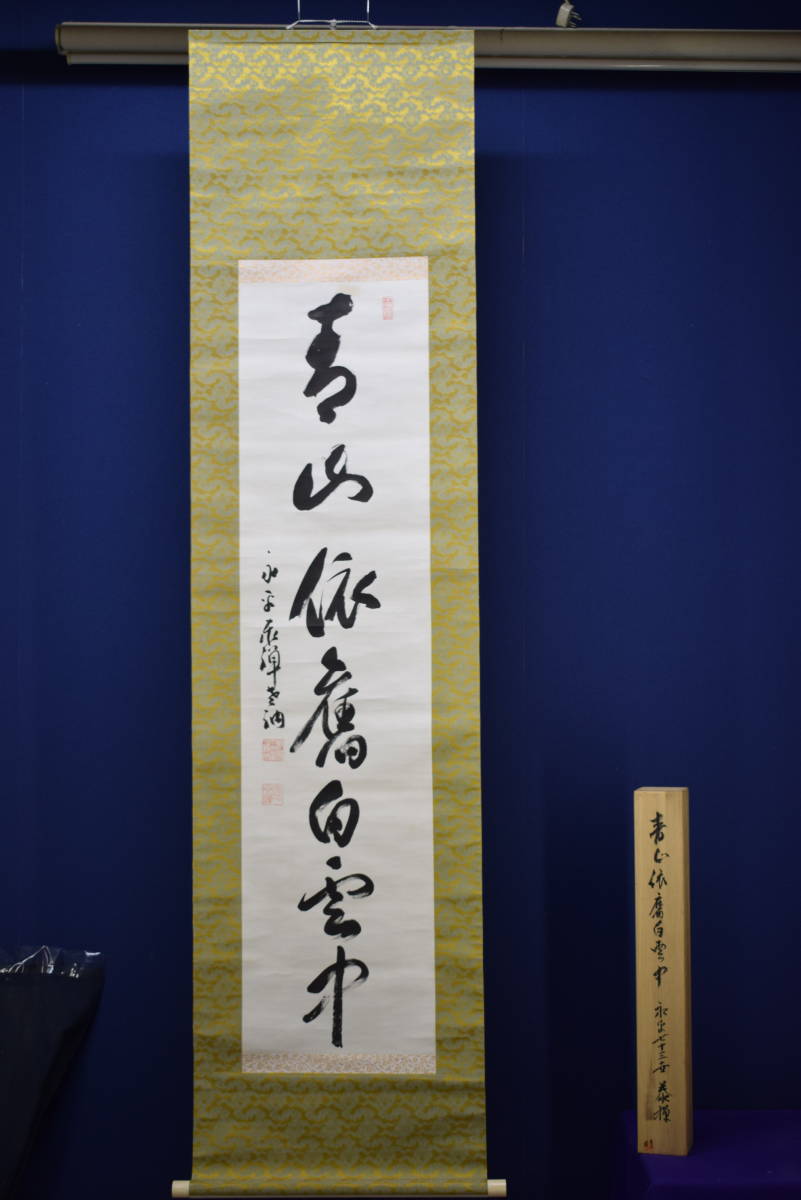 青山依舊白雲中
永平泰禅老衲
青山依舊白雲中 永平七十三世 泰禅